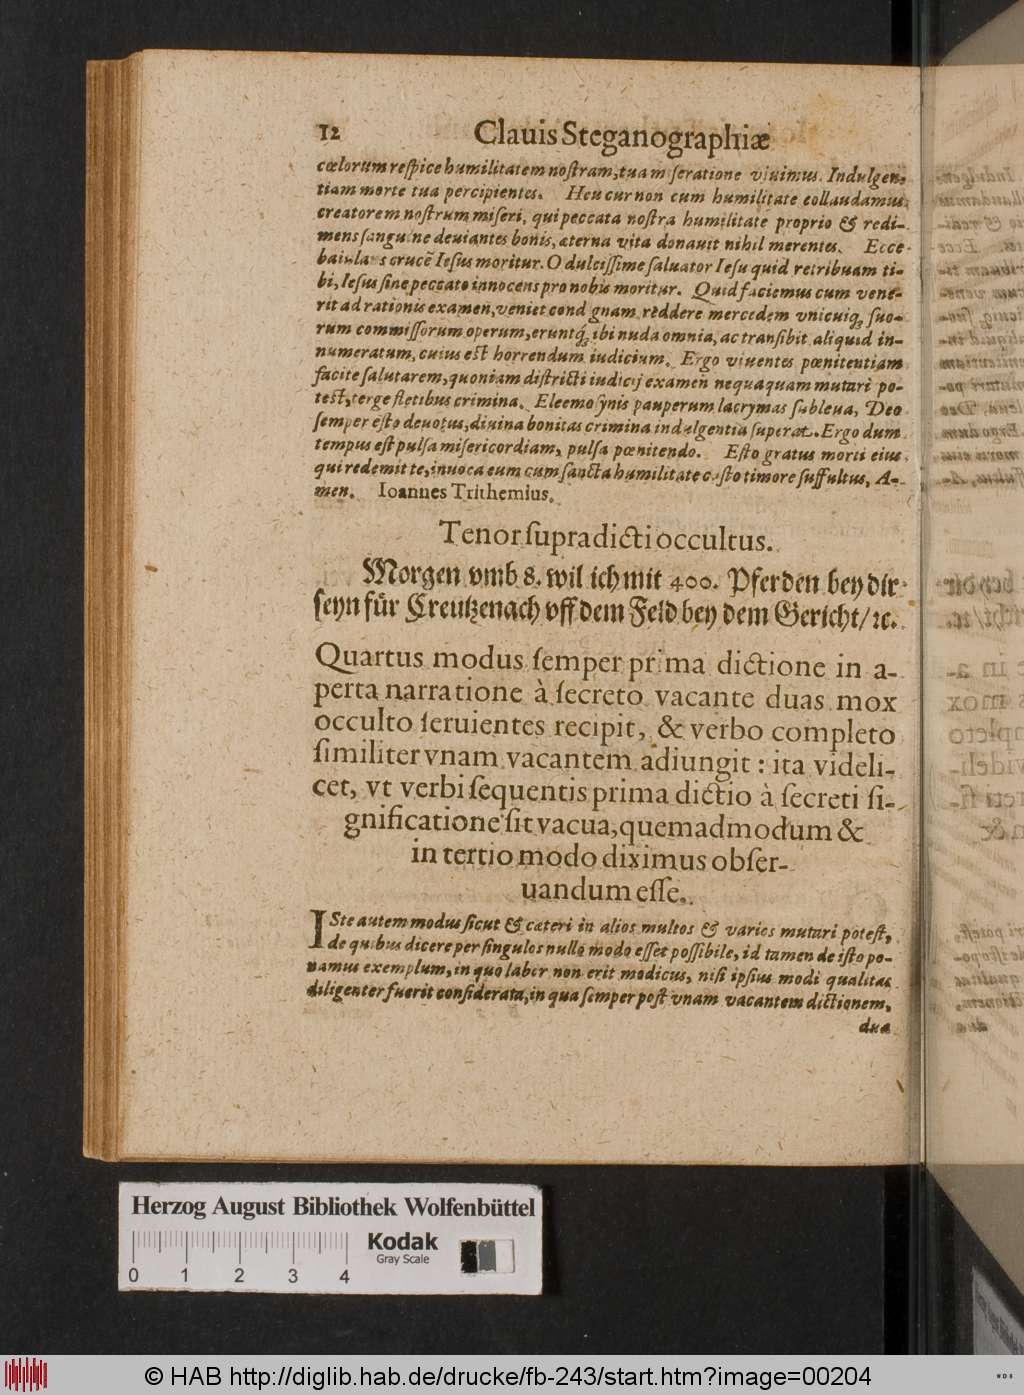 12 Clauis Steganographiæ
cœlorum reſpice humilitatem noſtram, tua miſeratione viuimus. Indulgen-
tiam morte tua percipientes. Heu cur non cum humilitate collaudamus
creatorem noſtrum miſeri, qui peccata noſtra humilitate proprio & redi-
mens ſanguine deuiantes bonis, æterna vita donauit nihil merentes. Ecce
baiulans crucē Ieſus moritur. O dulciſſime ſaluator Ieſu quid retribuam ti-
bi, Ieſus ſine peccato innocens pro nobis moritur. Quid faciemus cum vene-
rit ad rationis examen, veniet condignam reddere mercedem vnicuiq; ſuo-
rum commiſſorum operum, eruntq; ibi nuda omnia, ac tranſibit aliquid in-
numeratum, cuius eſt horrendum iudicium. Ergo viuentes pœnitentiam
facite ſalutarem, quoniam diſtricti iudicij examen nequaquam mutari po-
teſt, terge fletibus crimina. Eleemoſynis pauperum lacrymas ſubleua, Deo
ſemper eſto deuotus, diuina bonitas crimina indulgentia ſuperat. Ergo dum
tempus eſt pulſa miſericordiam, pulſa pœnitendo. Eſto gratus morti eius
qui redemit te, inuoca eum cum ſancta humilitate caſto timore ſuffultus, A-
men. Ioannes Trithemius.
Tenor ſupradicti occultus.
Morgen vmb 8. wil ich mit 400. Pferden bey dir
ſeyn für Creutzenach vff dem Feld bey dem Gericht/ꝛc.
Quartus modus ſemper prima dictione in a-
perta narratione à ſecreto vacante duas mox
occulto ſeruientes recipit, & verbo completo
ſimiliter vnam vacantem adiungit : ita videli-
cet, vt verbi ſequentis prima dictio à ſecreti ſi-
gnificatione ſit vacua, quemadmodum &
in tertio modo diximus obſer-
uandum eſſe.
ISte autem modus ſicut & cæteri in alios multos & varios mutari poteſt,
de quibus dicere per ſingulos nullo modo eſſet poſſibile, id tamen de iſto po-
namus exemplum, in quo labor non erit modicus, niſi ipſius modi qualitas
diligenter fuerit conſiderata, in qua ſemper poſt vnam vacantem dictionem,
dua
Herzog August Bibliothek Wolfenbüttel
Kodak
Gray Scale
0 1 2 3 4
© HAB http://diglib.hab.de/drucke/fb-243/start.htm?image=00204